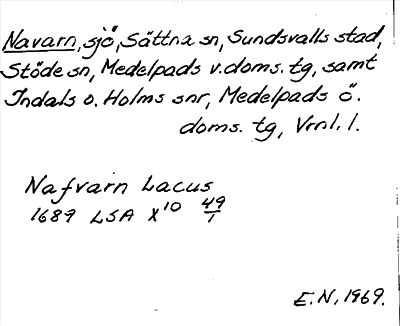 Navarn, sjö, Sättna sn, Sundsvalls stad,
Stöde sn, Medelpads v. doms. tg, samt
Indals o. Holms snr, Medelpads ö.
doms. tg, Vrnl. l.
Nafvarn Lacus
1689 LSA X10 49/1
E.N, 1969.